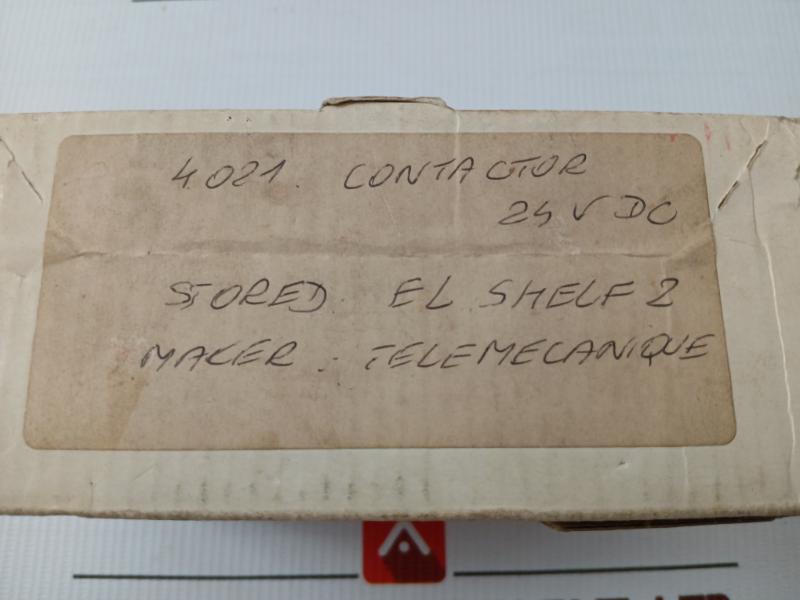 4021. CONTACTOR
24 V DC
STORED. EL SHELF 2
MAKER. TELEMECANIQUE